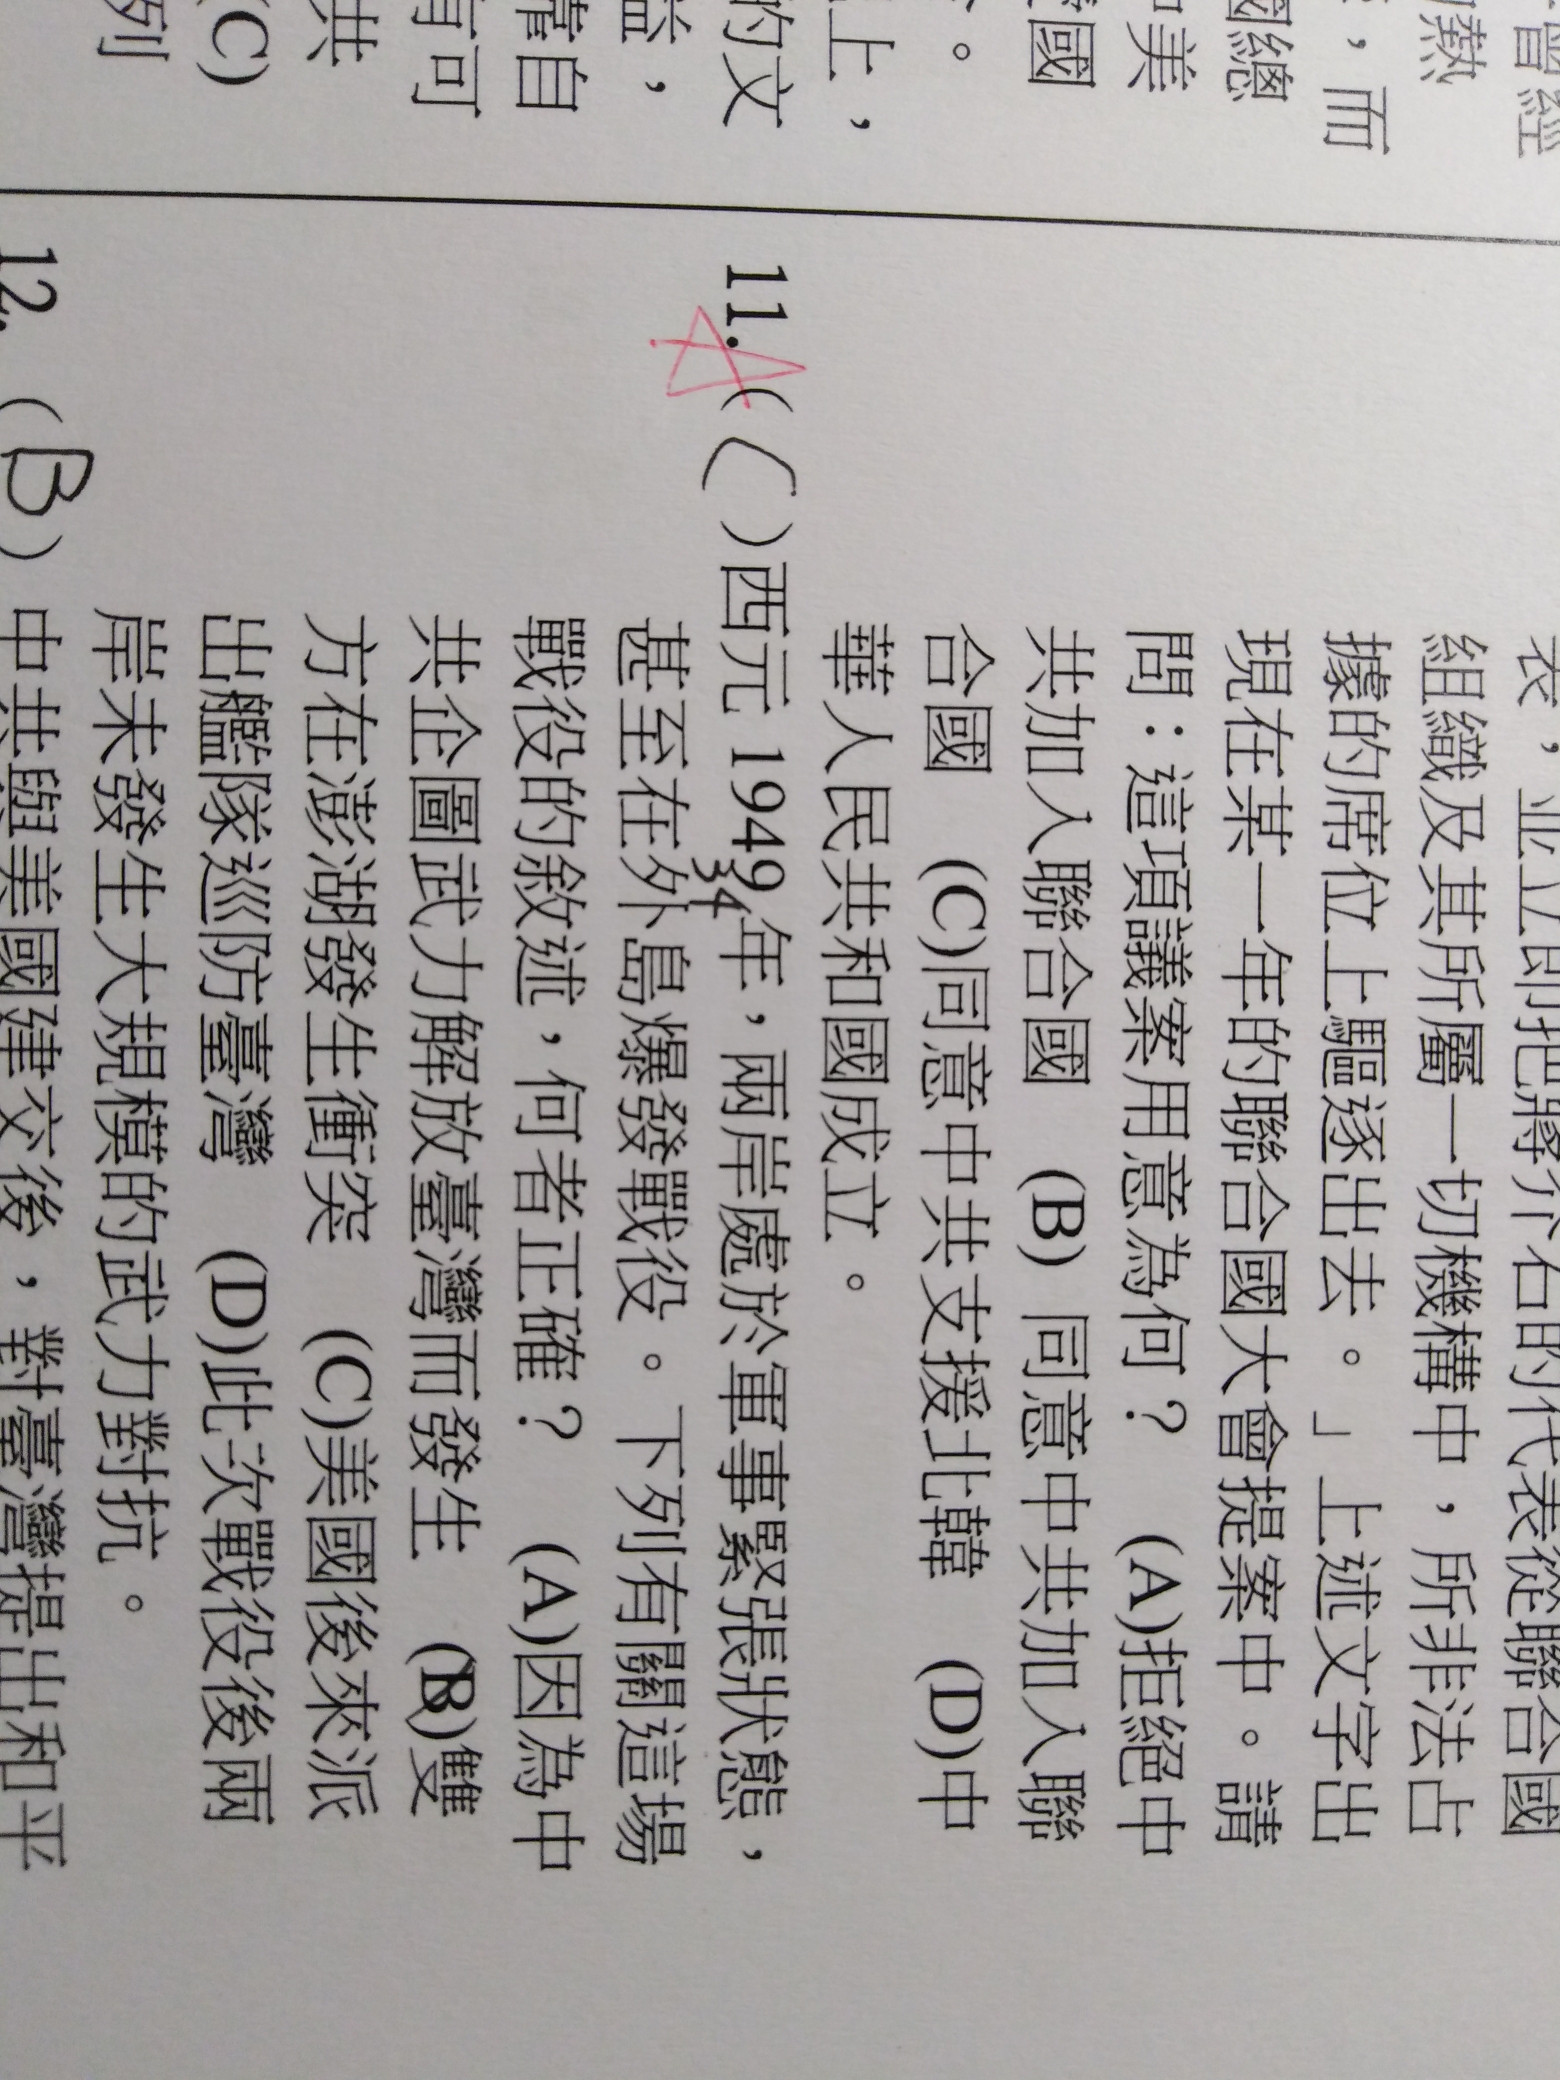 曾經
的熱
，而
國總
和美
國
。
上，
的文
益，
靠自
有可
共
(C)
列
表，並立即把蔣介石的代表從聯合國
組織及其所屬一切機構中，所非法占
據的席位上驅逐出去。」上述文字出
現在某一年的聯合國大會提案中。請
問：這項議案用意為何？ (A)拒絕中
共加入聯合國 (B) 同意中共加入聯
合國 (C)同意中共支援北韓 (D)中
華人民共和國成立。
11. ( C )西元 1949 年，兩岸處於軍事緊張狀態，
34
甚至在外島爆發戰役。下列有關這場
戰役的敘述，何者正確？ (A)因為中
共企圖武力解放臺灣而發生 (B)雙
方在澎湖發生衝突 (C)美國後來派
出艦隊巡防臺灣 (D)此次戰役後兩
岸未發生大規模的武力對抗。
12. ( B ) 中共與美國建交後，對臺灣提出和平